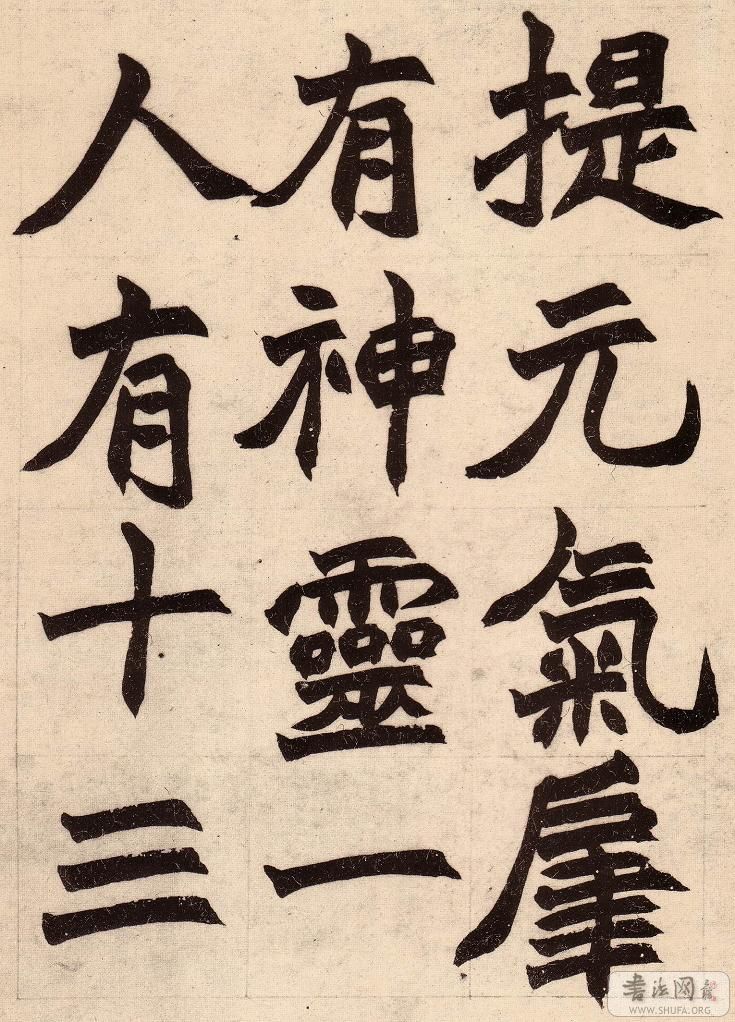 提元氣肁
有神靈一
人有十三
書法网
WWW.SHUFA.ORG